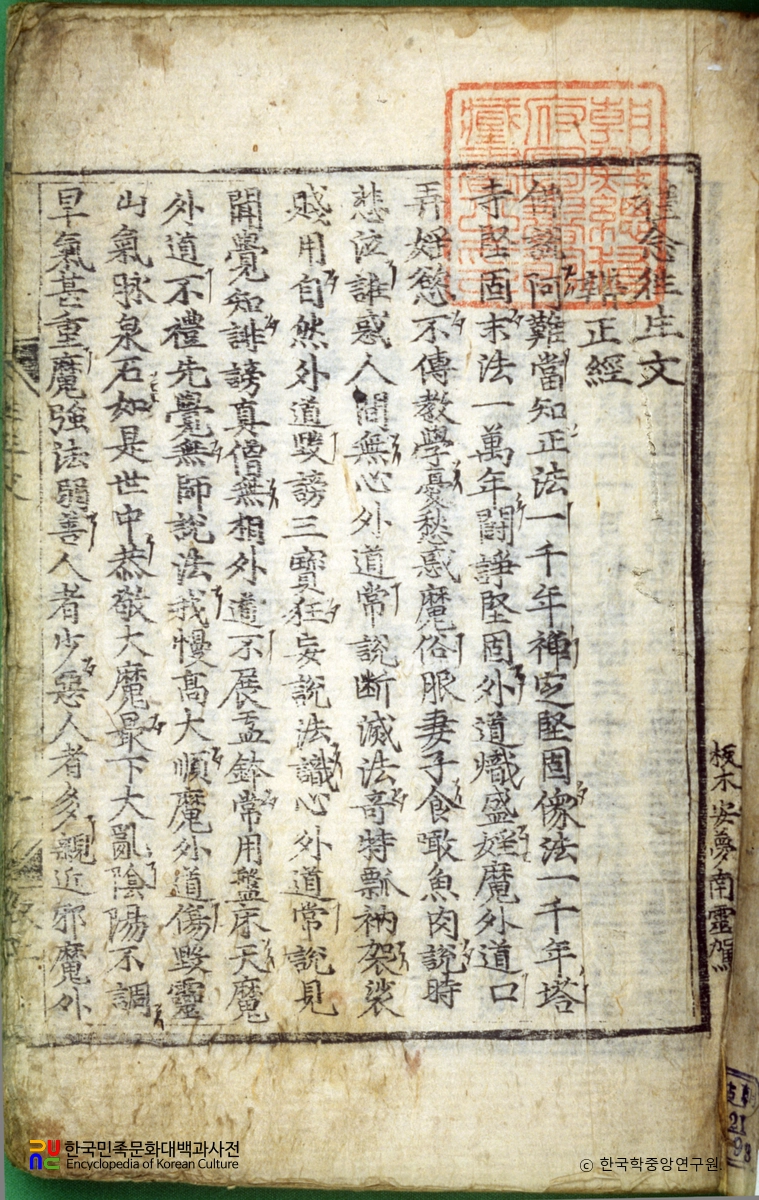 念往生文
正經
佛說阿難當知正法一千年禪定堅固像法一千年塔
寺堅固末法一萬年鬪諍堅固外道熾盛婬魔外道口
弄婬慾不傳教學憂愁惑魔俗服妻子食噉魚肉說時
悲泣誑惑人間無心外道常說断滅法奇特瓢衲袈裟
賤用自然外道毀謗三寶狂妄說法識心外道常說見
聞覺知誹謗真僧無相外道不展盂鉢常用盤床天魔
外道不禮先覺無師說法我慢高大順魔外道傷毀靈
山氣脉泉石如是世中恭敬大魔最下大亂陰陽不調
旱氣甚重魔強法弱善人者少惡人者多親近邪魔外
板木安夢南靈駕
朝鮮總督府圖書館藏書之印
한국민족문화대백과사전
Encyclopedia of Korean Culture
© 한국학중앙연구원